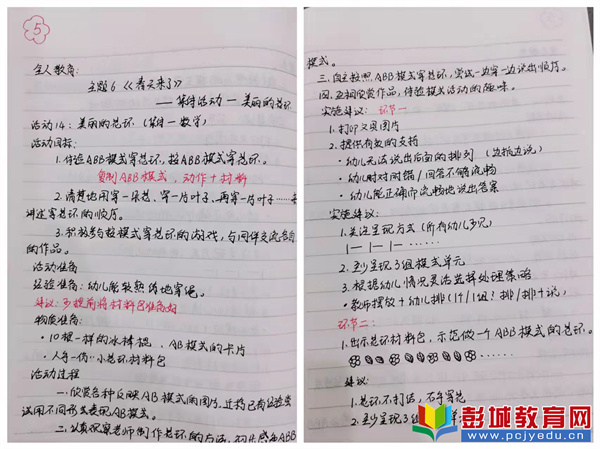 5
全人教育:
主题6《春天来了》
——集体活动一 美丽的花环
活动14: 美丽的花环 (集体—数学)
活动目标:
1. 体验ABB模式穿花环, 按ABB模式穿花环。
复制ABB模式, 动作+材料
2. 清楚地用穿一朵花、穿一片叶子、再穿一片叶子……来
讲述穿花环的顺序。
3. 积极参与按模式穿花环的游戏, 与同伴交流各自
的作品。
活动准备
经验准备: 幼儿能较熟练地穿绳。
建议: 多提前将材料包准备好
物质准备:
·10根一样的冰棒棍, AB模式的卡片
·人手一份"小花环材料包
活动过程
一. 欣赏各种反映AB模式的图片, 迁移已有经验尝
试用不同形式表现AB模式。
二. 认真观察老师制作花环的方法, 初步感知ABB
模式。
三. 自主按照ABB模式穿花环, 尝试一边穿一边说出顺序。
四. 互相欣赏作品, 体验模式活动的趣味。
实施建议: 环节一
1. 打印文具图片
2. 提供有效的支持
·幼儿无法说出后面的排列 (边指边说)
·幼儿时对时错/回答不够流畅
·幼儿能正确而流畅地说出答案
实施建议:
1. 关注呈现方式 (所有幼儿多见)
|— |— |— ......
2. 至少呈现3组模式单元
3. 根据幼儿情况灵活选择处理策略
·教师摆放+幼儿排(1个/1组! 排/排+说)
环节二:
1. 出示花环材料包, 示范做一个ABB模式的花环。
......
建议:
1. 花环不打结, 右手穿花
2. 至少呈现3组
彭城教育网
www.pcjyedu.cn